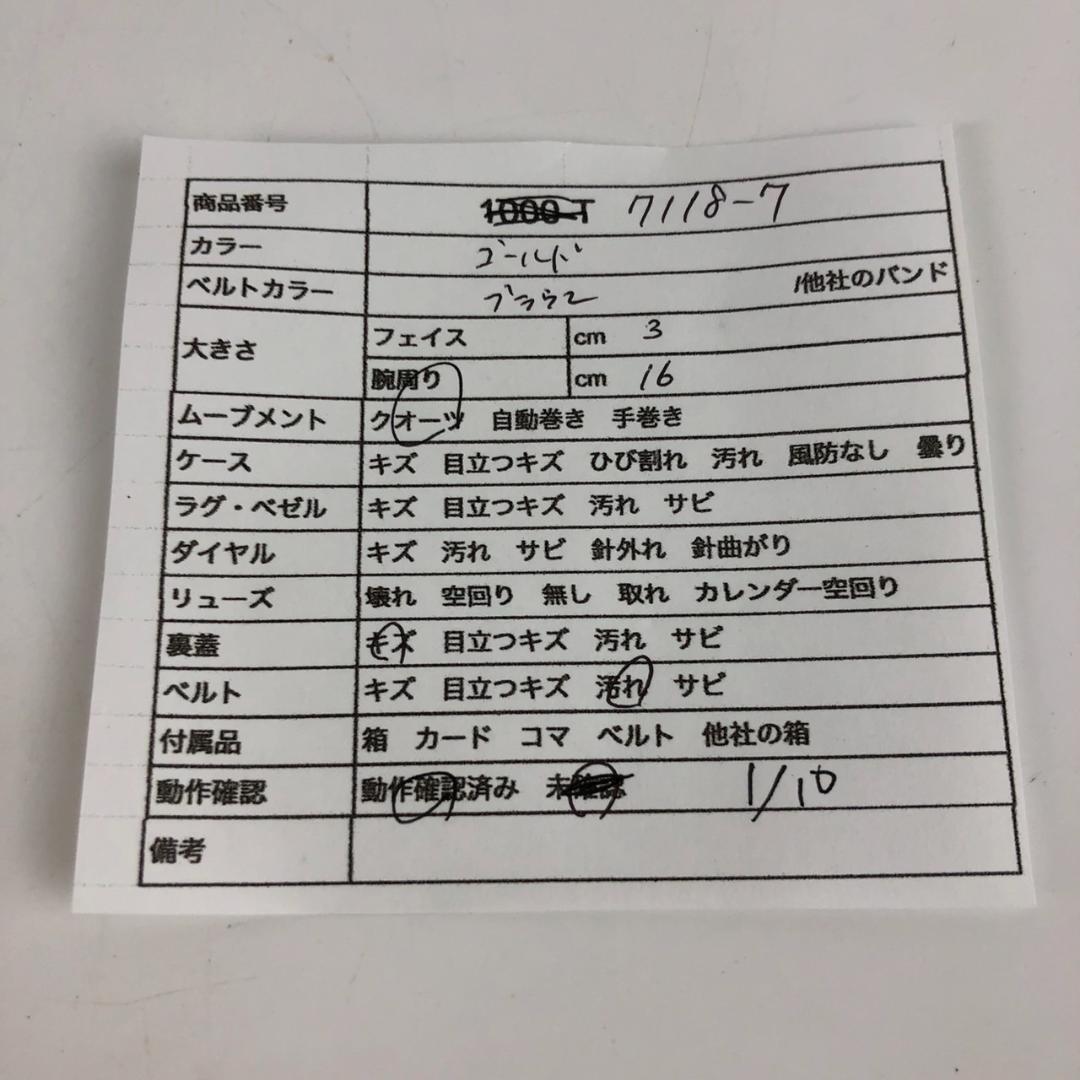 商品番号 1000-T 7118-7
カラー ゴールド
ベルトカラー ブラウン /他社のバンド
大きさ フェイス cm 3
腕周り cm 16
ムーブメント クオーツ 自動巻き 手巻き
ケース キズ 目立つキズ ひび割れ 汚れ 風防なし 曇り
ラグ・ベゼル キズ 目立つキズ 汚れ サビ
ダイヤル キズ 汚れ サビ 針外れ 針曲がり
リューズ 壊れ 空回り 無し 取れ カレンダー空回り
裏蓋 キズ 目立つキズ 汚れ サビ
ベルト キズ 目立つキズ 汚れ サビ
付属品 箱 カード コマ ベルト 他社の箱
動作確認 動作確認済み 未確認 1/10
備考